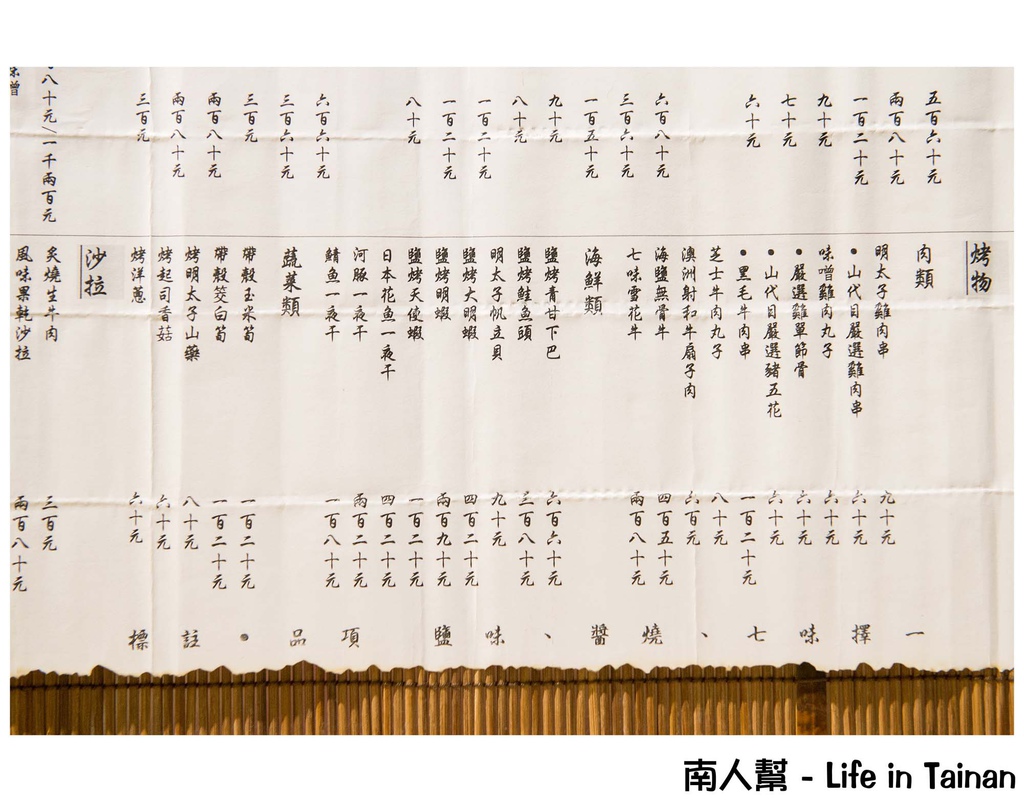 五百六十元
兩百八十元
一百二十元
九十元
七十元
六十元
六百八十元
三百六十元
一百五十元
九十元
八十元
一百二十元
一百二十元
八十元
六百六十元
三百六十元
三百元
兩百八十元
兩百八十元
三百元
•八十元/一千兩百元
味噌
烤物
肉類
明太子雞肉串 九十元
•山代目嚴選雞肉串 六十元
味噌雞肉丸子 六十元
•嚴選雞單節骨 六十元
•山代目嚴選豬五花 六十元
•黑毛牛肉串 一百二十元
芝士牛肉丸子 八十元
澳洲射和牛扇子肉 六百元
海鹽無骨牛 四百五十元
七味雪花牛 兩百八十元
海鮮類
鹽烤青甘下巴 六百六十元
鹽烤鮭魚頭 三百八十元
明太子帆立貝 九十元
鹽烤大明蝦 四百二十元
鹽烤明蝦 兩百九十元
鹽烤天使蝦 一百二十元
日本花魚一夜干 四百二十元
河豚一夜干 兩百二十元
鯖魚一夜干 一百八十元
蔬菜類
帶殼玉米筍 一百二十元
帶殼茭白筍 一百二十元
烤明太子山藥 八十元
烤起司香菇 六十元
烤洋蔥 六十元
沙拉
炙燒生牛肉 三百元
風味果乾沙拉 兩百八十元
標註•品項 鹽味、醬燒、七味擇一
南人幫 - Life in Tainan